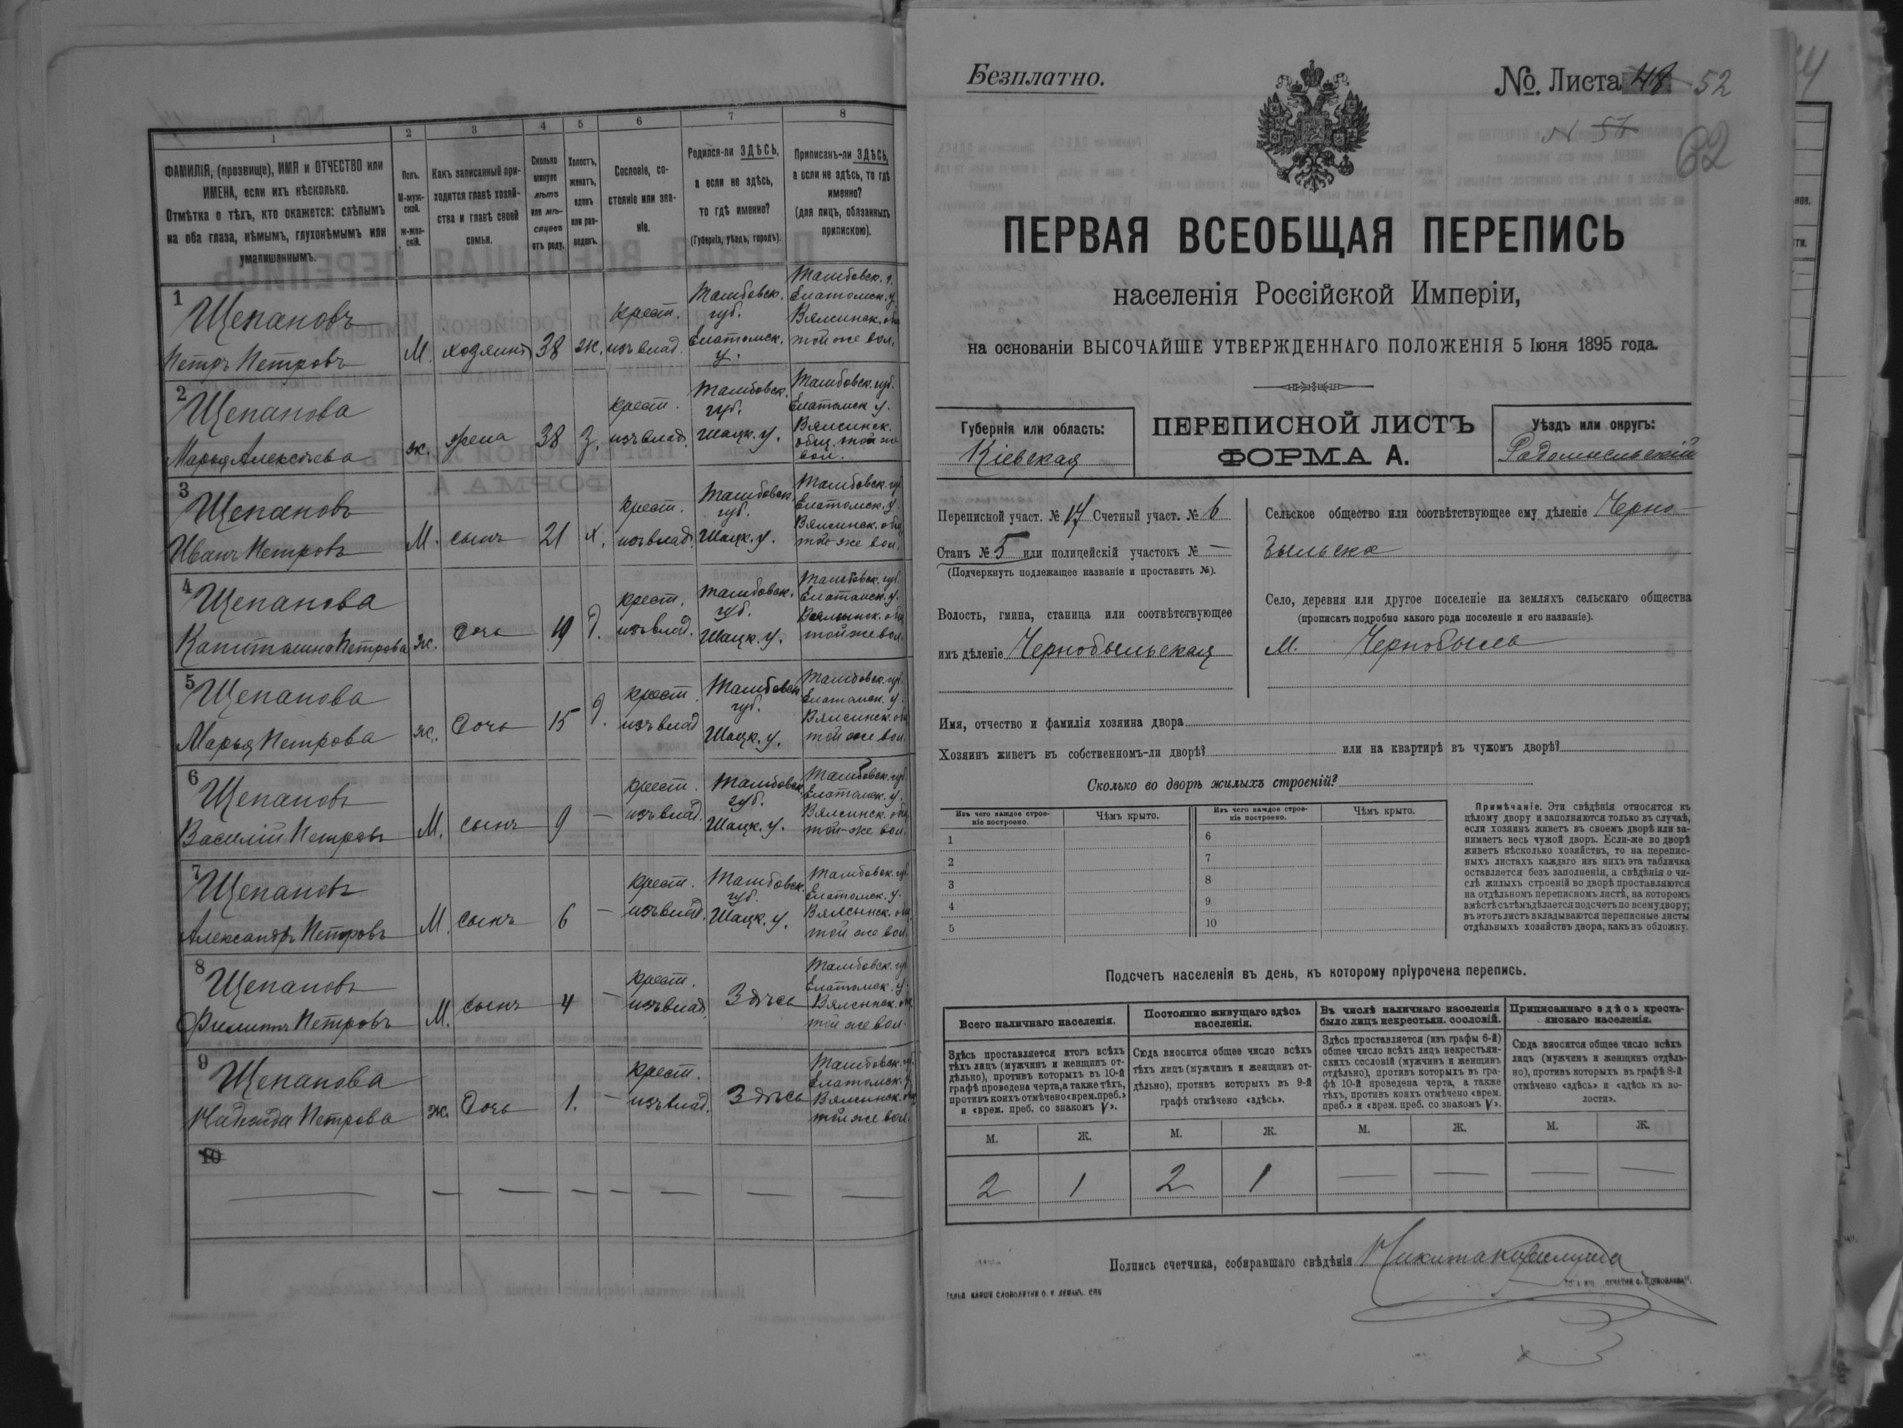 1
2
3
4
5
6
7
8
ФАМИЛІЯ, (прозвище), ИМЯ и ОТЧЕСТВО или
ИМЕНА, если ихъ нѣсколько.
Отмѣтка о тѣхъ, кто окажется: слѣпымъ
на оба глаза, нѣмымъ, глухонѣмымъ или
умалишеннымъ.
Полъ.
М-муж-
ской.
ж-жен-
скій.
Какъ записанный при-
ходится главѣ хозяй-
ства и главѣ своей
семьи.
Сколько
минуло
лѣтъ
или мѣ-
сяцевъ
отъ роду.
Холостъ,
женатъ,
вдовъ
или раз-
веденъ.
Сословіе, со-
стояніе или зва-
ніе.
Родился-ли ЗДѢСЬ,
а если не здѣсь,
то гдѣ именно?
(Губернія, уѣздъ, городъ).
Приписанъ-ли ЗДѢСЬ,
а если не здѣсь, то гдѣ
именно?
(для лицъ, обязанныхъ
припискою).
1
Щепановъ
Петръ Петровъ
М.
хозяинъ
38
ж.
крест.
изъ влад.
Тамбовск.
губ.
Елатомск.
у.
Тамбовск. г.
Елатомск. у.
Вялсинск. общ.
той же вол.
2
Щепанова
Марья Алексѣева
ж.
жена
38
З.
крест.
изъ влад.
Тамбовск.
губ.
Шацк. у.
Тамбовск. губ.
Елатомск у.
Вялсинск.
общ. той же
вол.
3
Щепановъ
Иванъ Петровъ
М.
сынъ
21
х.
крест.
изъ влад.
Тамбовск.
губ.
Шацк. у.
Тамбовск. губ.
Елатомск. у.
Вялсинск. общ.
той же вол.
4
Щепанова
Капитолина Петрова
ж.
Дочь
19
д.
крест.
изъ влад.
Тамбовск.
губ.
Шацк. у.
Тамбовск. губ.
Елатомск. у.
Вялсинск. общ.
той же вол.
5
Щепанова
Марья Петрова
ж.
Дочь
15
д.
крест.
изъ влад
Тамбовск
губ.
Шацк. у.
Тамбовск. губ.
Елатомск. у.
Вялсинск. общ.
той же вол.
6
Щепановъ
Василій Петровъ
М.
сынъ
9
—
крест.
изъ влад.
Тамбовск.
губ.
Шацк. у.
Тамбовск. губ.
Елатомск. у.
Вялсинск. общ.
той-же вол.
7
Щепановъ
Александръ Петровъ
М.
сынъ
6
—
крест.
изъ влад.
Тамбовск.
губ.
Шацк. у.
Тамбовск. губ.
Елатомск. у.
Вялсинск. общ.
той же вол.
8
Щепановъ
Филиппъ Петровъ
М.
сынъ
4
—
крест.
изъ влад.
Здѣсь
Тамбовск. губ.
Елатомск. у.
Вялсинск. общ.
той же вол.
9
Щепанова
Надежда Петрова
ж.
Дочь
1.
—
крест.
изъ влад.
Здѣсь
Тамбовск. губ.
Елатомск. у.
Вялсинск. общ.
той же вол.
10
Безплатно.
№. Листа 48 52
62
ПЕРВАЯ ВСЕОБЩАЯ ПЕРЕПИСЬ
населенія Россійской Имперіи,
на основаніи ВЫСОЧАЙШЕ УТВЕРЖДЕННАГО ПОЛОЖЕНІЯ 5 Іюня 1895 года.
Губернія или область:
Кіевская
ПЕРЕПИСНОЙ ЛИСТЪ
ФОРМА А.
Уѣздъ или округъ:
Радомысльскій
Переписной участ. № 17 Счетный участ. № 6
Станъ № 5 или полицейскій участокъ № —
(Подчеркнуть подлежащее названіе и проставить №).
Волость, гмина, станица или соотвѣтствующее
имъ дѣленіе Чернобыльская
Сельское общество или соотвѣтствующее ему дѣленіе Черно-
быльска
Село, деревня или другое поселеніе на земляхъ сельскаго общества
(прописать подробно какого рода поселеніе и его названіе).
М. Чернобыль
Имя, отчество и фамилія хозяина двора
Хозяинъ живетъ въ собственномъ-ли дворѣ? или на квартирѣ въ чужомъ дворѣ?
Сколько во дворѣ жилыхъ строеній?
Изъ чего каждое строе-
ніе построено.
Чѣмъ крыто.
Изъ чего каждое строе-
ніе построено.
Чѣмъ крыто.
1
2
3
4
5
6
7
8
9
10
Примѣчаніе. Эти свѣдѣнія относятся къ
цѣлому двору и заполняются только въ случаѣ,
если хозяинъ живетъ въ своемъ дворѣ или за-
нимаетъ весь чужой дворъ. Если-же во дворѣ
живетъ нѣсколько хозяйствъ, то на перепис-
ныхъ листахъ каждаго изъ нихъ эта табличка
оставляется безъ заполненія, а свѣдѣнія о чи-
слѣ жилыхъ строеній во дворѣ проставляются
на отдѣльномъ переписномъ листѣ, на которомъ
вмѣстѣ съ тѣмъ дѣлается подсчетъ по всему двору;
въ этотъ листъ вкладываются переписные листы
отдѣльныхъ хозяйствъ двора, какъ въ обложку.
Подсчетъ населенія въ день, къ которому пріурочена перепись.
Всего наличнаго населенія.
Постоянно живущаго здѣсь
населенія.
Въ числѣ наличнаго населенія
было лицъ некрестьян. сословій.
Приписаннаго здѣсь кресть-
янскаго населенія.
Здѣсь проставляется итогъ всѣхъ
тѣхъ лицъ (мужчинъ и женщинъ от-
дѣльно), противъ которыхъ въ 10-й
графѣ проведена черта, а также тѣхъ,
противъ коихъ отмѣчено «врем. преб.»
и «врем. преб. со знакомъ V».
Сюда вносится общее число всѣхъ
тѣхъ лицъ (мужчинъ и женщинъ от-
дѣльно), противъ которыхъ въ 9-й
графѣ отмѣчено «здѣсь».
Здѣсь проставляется (изъ графы 6-й)
общее число всѣхъ лицъ некрестьян-
скихъ сословій (мужчинъ и женщинъ
отдѣльно), противъ которыхъ въ гра-
фѣ 10-й проведена черта, а также
тѣхъ, противъ коихъ отмѣчено «врем.
преб.» и «врем. преб. со знакомъ V».
Сюда вносится общее число всѣхъ
лицъ (мужчинъ и женщинъ отдѣль-
но), противъ которыхъ въ графѣ 8-й
отмѣчено «здѣсь» и «здѣсь къ во-
лости».
М.
Ж.
М.
Ж.
М.
Ж.
М.
Ж.
2
1
2
1
—
—
—
—
Подпись счетчика, собиравшаго свѣдѣнія Никита